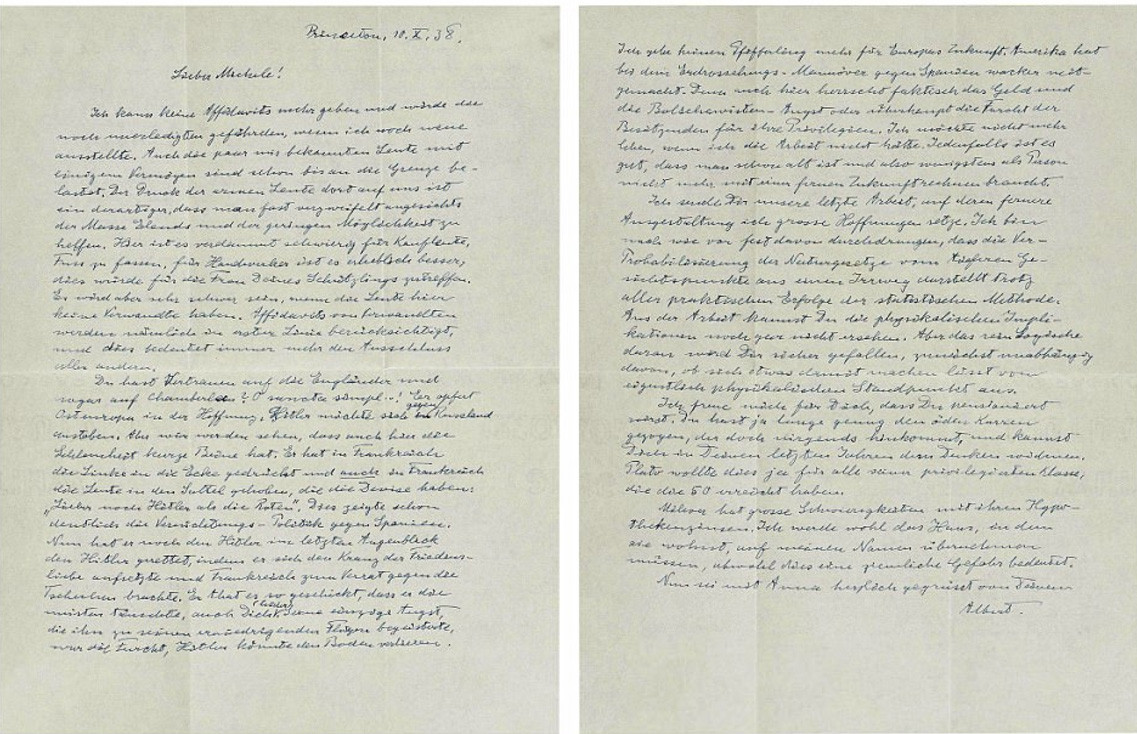 Princeton, 10.X.38.
Lieber Michele!
Ich kann keine Affidavits mehr geben und würde die
noch unerledigten gefährden, wenn ich noch neue
ausstellte. Auch die paar mir bekannten Leute mit
einigem Vermögen sind schon bis an die Grenze be-
lastet. Der Druck der armen Leute dort auf uns ist
ein derartiger, dass man fast verzweifelt angesichts
der Masse Elends und der geringen Möglichkeit zu
helfen. Hier ist es verdammt schwierig für Kaufleute,
Fuss zu fassen, für Handwerker ist es erheblich besser;
dies würde für die Frau Deines Schützlings zutreffen.
Es wird aber sehr schwer sein, wenn die Leute hier
keine Verwandte haben. Affidavits von Verwandten
werden nämlich in erster Linie berücksichtigt,
und dies bedeutet immer mehr den Ausschluss
aller anderen.
Du hast Vertrauen auf die Engländer und
sogar auf Chamberlain? O sancta simpl..! Er opfert
Osteuropa in der Hoffnung, Hitler möchte sich gegen Russland
austoben. Aber wir werden sehen, dass auch hier die
Schlauheit kurze Beine hat. Er hat in Frankreich
die Linke in die Ecke gedrückt und auch in Frankreich
die Leute in den Sattel gehoben, die die Devise haben:
„Lieber noch Hitler als die Roten". Dies zeigte schon
deutlich die Vernichtungs-Politik gegen Spanien.
Nun hat er noch den Hitler im letzten Augenblick
den Hitler gerettet, indem er sich den Kranz der Friedens-
liebe aufsetzte und Frankreich zum Verrat gegen die
Tschechen brachte. Er that es so geschickt, dass er die
meisten täuschte, auch Dich (leider). Seine einzige Angst,
die ihn zu seinen erniedrigenden Flügen begeisterte,
war die Furcht, Hitler könnte den Boden verlieren.
Ich gebe keinen Pfifferling mehr für Europas Zukunft. Amerika hat
bei dem Erdrosselungs-Mannöver gegen Spanien wacker mit-
gemacht. Denn auch hier herrscht faktisch das Geld und
die Bolschewisten-Angst oder überhaupt die Furcht der
Besitzenden für ihre Privilegien. Ich möchte nicht mehr
leben, wenn ich die Arbeit nicht hätte. Jedenfalls ist es
gut, dass man schon alt ist und also wenigstens als Person
nicht mehr mit einer fernen Zukunft rechnen braucht.
Ich sende Dir unsere letzte Arbeit, auf deren fernere
Ausgestaltung ich grosse Hoffnungen setze. Ich bin
nach wie vor fest davon durchdrungen, dass die Ver-
Probabilisierung der Naturgesetze vom tieferen Ge-
sichtspunkte aus einen Irrweg darstellt trotz
aller praktischen Erfolge der statistischen Methode.
Aus der Arbeit kannst Du die physikalischen Impli-
kationen noch gar nicht ersehen. Aber das rein Logische
daran wird Dir sicher gefallen, zunächst unabhängig
davon, ob sich etwas damit machen lässt vom
eigentlich physikalischen Standpunkt aus.
Ich freue mich für Dich, dass Du pensioniert
wirst. Du hast ja lange genug den öden Karren
gezogen, der doch nirgends hinkommt, und kannst
Dich in Deinen letzten Jahren dem Denken widmen.
Plato wollte dies ja für alle seiner privilegierten Klasse,
die die 50 erreicht haben.
Mileva hat grosse Schwierigkeiten mit ihren Hypo-
thekenzinsen. Ich werde wohl das Haus, in dem
sie wohnt, auf meinen Namen übernehmen
müssen, obwohl dies eine peinliche Gefahr bedeutet.
Nun sei mit Anna herzlich gegrüsst von Deinem
Albert.